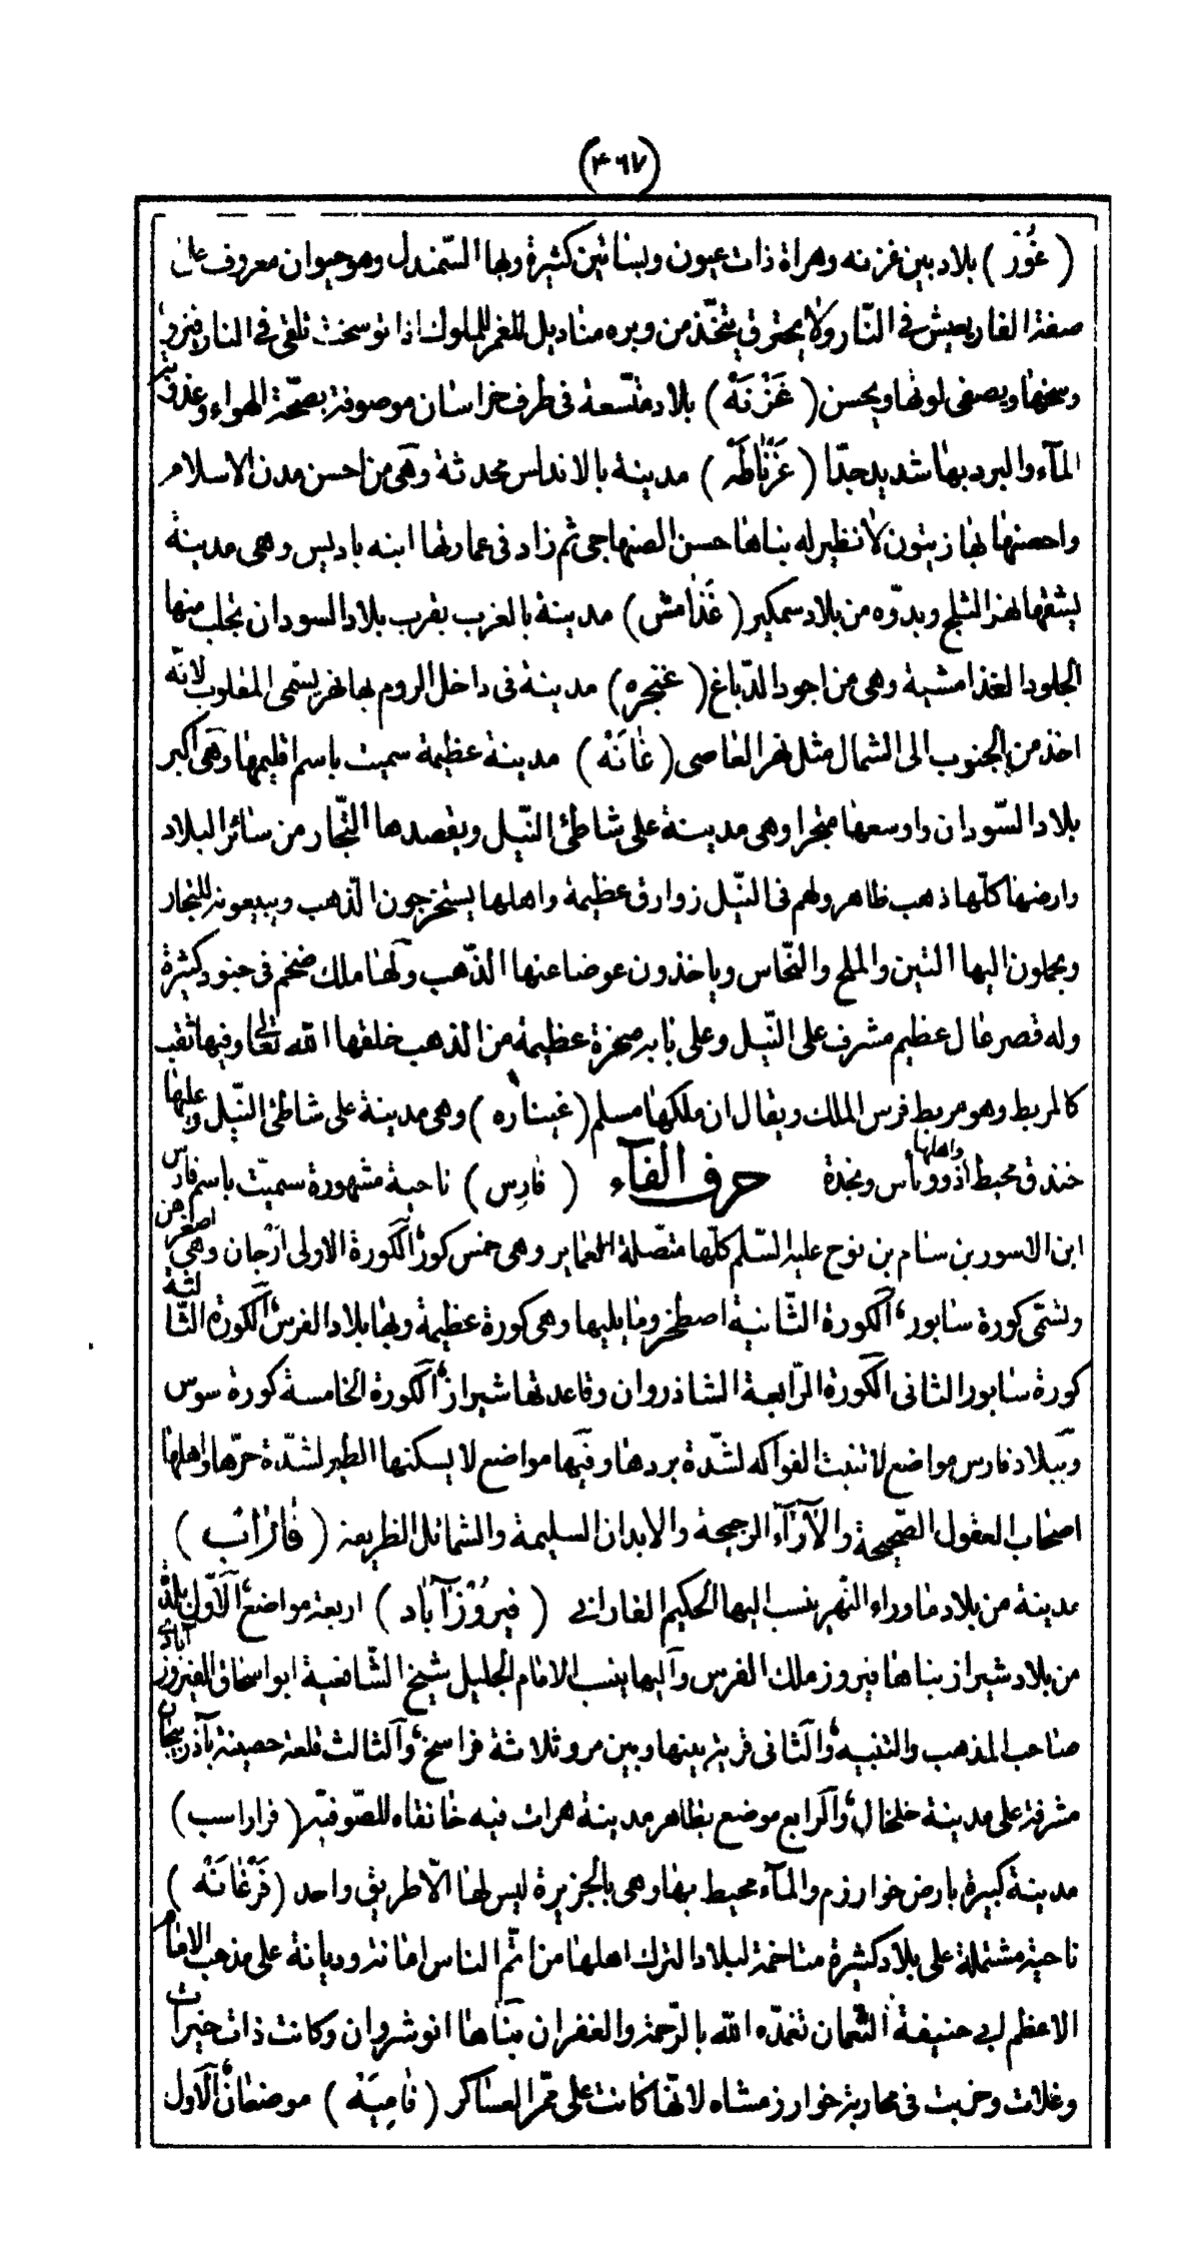 (٤٦٧)
(غُوْر) بلاد بين غزنه وهراة ذات عيون وبساتين كثيرة وبها السّمندل وهو حيوان معروف على
صفة الفار يعيش فى النّار ولا يحترق يتّخذ من وبره مناديل للغمر للملوك اذا توسخت تلقى فى النار فيزول
وسخها ويصفى لونها ويحسن (غَزْنَهْ) بلاد متّسعة فى طرف خراسان موصوفة بصحّة الهواء وعذوبة
المآء والبرد بها شديد جدّا (غَرْنَاطَهْ) مدينة بالاندلس محدثة وهى من احسن مدن الاسلام
واحصنها بها زيتون لا نظير له بناها حسن الصنهاجى ثم زاد فى عمارتها ابنه باديس وهى مدينة
يشقها نهر الثلج وبدّوه من بلاد سمكير (غَذَامش) مدينة بالغرب بقرب بلاد السودان يجلب منها
الجلود الغذامشية وهى من اجود الدّباغ (غنجره) مدينة فى داخل الروم بها نهر يسّمى المقلوب لانّه
اخذ من الجنوب الى الشمال مثل نهر العاصى (غَانَهْ) مدينة عظيمة سميت باسم اقليمها وهى اكبر
بلاد السّودان واوسعها متجرا وهى مدينة على شاطئ النّيل ويقصدها التّجار من سائر البلاد
وارضها كلّها ذهب ظاهر ولهم فى النّيل زوارق عظيمة واهلها يستخرجون الذّهب ويبيعونه للتجار
ويحملون اليها التين والملح والنّحاس وياخذون عوضا عنها الذّهب ولها ملك ضخم فى جنود كثيرة
وله قصر عال عظيم مشرف على النّيل وعلى بابه صخرة عظيمة من الذهب خلقها الله تعالى وفيها ثقب
كالمربط وهو مربط فرس الملك ويقال ان ملكها مسلم (غيناره) وهى مدينة على شاطئ النّيل وعليها
خندق محيط واهلها اذوو باس ونجدة حرف الفآء (فارِس) ناحية مشهورة سميّت باسم فارس
ابن الاسور بن سام بن نوح عليه السّلم كلّها متصلة المعاير وهى خمس كور الكورة الاولى ارّجان وهى اصغرهن
وتسّمى كورة سابور الكورة الثّانية اصطخر وما يليها وهى كورة عظيمة وبها بلاد الفرس الكورة الثّالثة
كورة سابور الثانى الكورة الرّابعة الشاذروان وقاعدتها شيراز الكورة الخامسة كورة سوس
وببلاد فارس مواضع لا تنبت الفواكه لشدّة بردها وفيها مواضع لا يسكنها الطير لشدّة حرّها واهلها
اصحاب العقول الصّحيحة والآرآء الرجيحة والابدان السليمة والشمائل الظريفه (فاراب)
مدينة من بلاد ماوراء النّهر ينسب اليها الحكيم الفارابى (فيروزآباد) اربعة مواضع الاوّل بلدة
من بلاد شيراز بناها فيروز ملك الفرس واليها ينسب الامام الجليل شيخ الشّافعية ابو اسحاق الفيروزآبادى
صاحب المذهب والتنبيه والثانى قرية بينها وبين مرو ثلاثة فراسخ والثالث قلعة حصينة بآذربيجان
مشرفة على مدينة خلخال والرابع موضع بظاهر مدينة هرات فيه خانقاه للصّوفيّه (فراراسب)
مدينة كبيرة بارض خوارزم والمآء محيط بها وهى بالجزيرة ليس لها الّا طريق واحد (فَرْغَانَهْ)
ناحية مشتملة على بلاد كثيرة متاخمة لبلاد الترك اهلها من اتم الناس امانة وديانة على مذهب الامام
الاعظم ابى حنيفة النّعمان تغمّده الله بالرّحمة والغفران بناها انوشروان وكانت ذات خيرات
وغلات وخربت فى محاربة خوارزمشاه لانّها كانت على ممّر العساكر (فَامِيَهْ) موضعان الاول